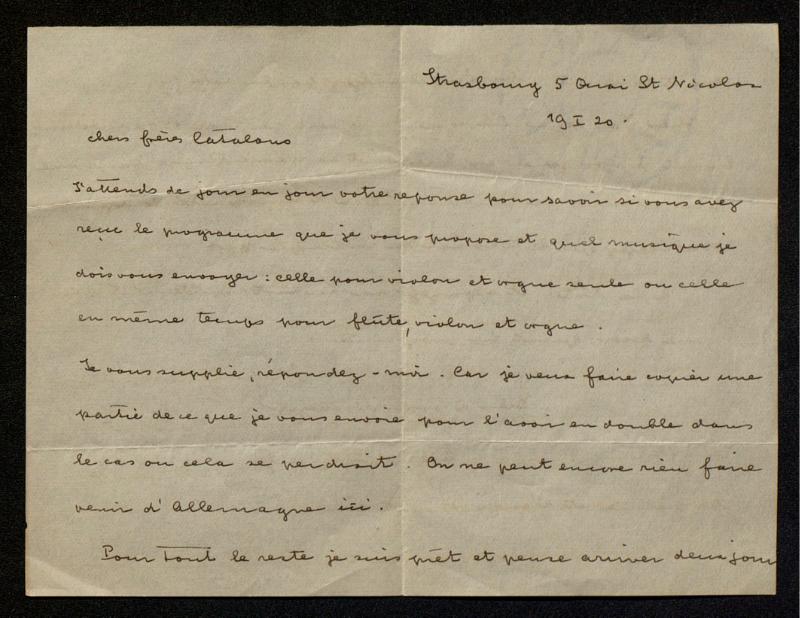 Strasbourg 5 Quai St Nicolas
19 I 20.
chers frères Catalans
J'attends de jour en jour votre reponse pour savoir si vous avez
reçu le programme que je vous propose et quel musique je
dois vous envoyer : celle pour violon et orgue seule ou celle
en même temps pour flûte, violon et orgue.
Je vous supplie, répondez-moi. Car je veux faire copier une
partie de ce que je vous envoie pour l'avoir en double dans
le cas ou cela se perdrait. On ne peut encore rien faire
venir d'Allemagne ici.
Pour tout le reste je suis prêt et pense arriver deux jours